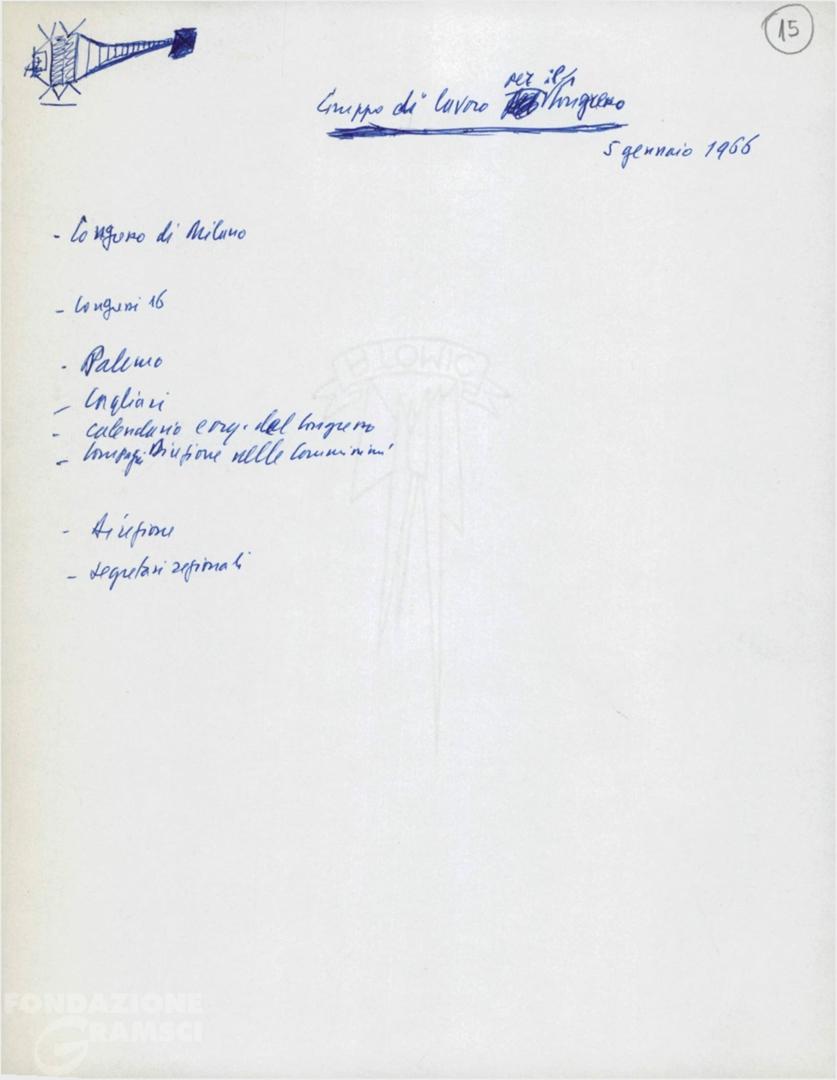 15
Gruppo di lavoro per il Congresso
5 gennaio 1966
- Congresso di Milano
- Congressi 16
- Palermo
- Cagliari
- calendario e org. del Congresso
- Compagni Direzione nelle Commissioni
- Direzione
- segretari regionali
FONDAZIONE
GRAMSCI